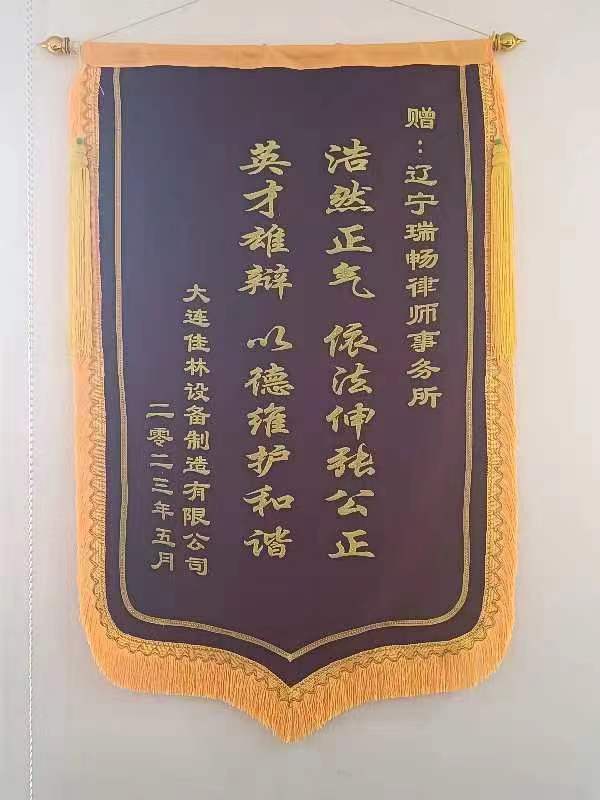 赠：辽宁瑞畅律师事务所
浩然正气 依法伸张公正
英才雄辩 以德维护和谐
大连佳林设备制造有限公司
二零二三年五月